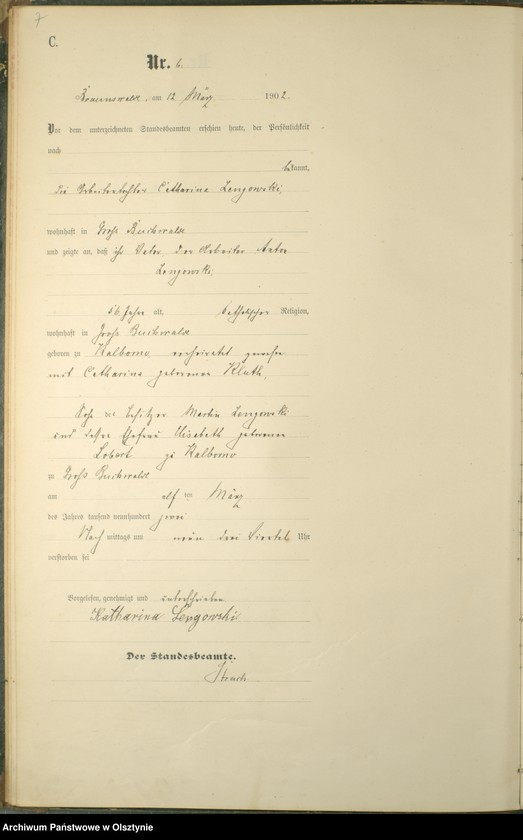 7
C.
Nr. 6
Braunswalde, am 12 März 1902.
Vor dem unterzeichneten Standesbeamten erschien heute, der Persönlichkeit
nach
bekannt,
die Arbeitertochter Catharina Lengowski,
wohnhaft in Groß Buchwalde
und zeigte an, daß ihr Vater, der Arbeiter Anton
Lengowski,
56 Jahre alt, katholischer Religion,
wohnhaft in Groß Buchwalde
geboren zu Kalborno, verheiratet gewesen
mit Catharina geborenen Kluth,
Sohn des Besitzer Martin Lengowski
und dessen Ehefrau Elisabeth geborenen
zu Kalborno
zu Groß Buchwalde
am elf ten März
des Jahres tausend neunhundert zwei
Nach mittags um neun drei Viertel Uhr
verstorben sei
Vorgelesen, genehmigt und unterschrieben
Katharina Lengowski
Der Standesbeamte.
Archiwum Państwowe w Olsztynie